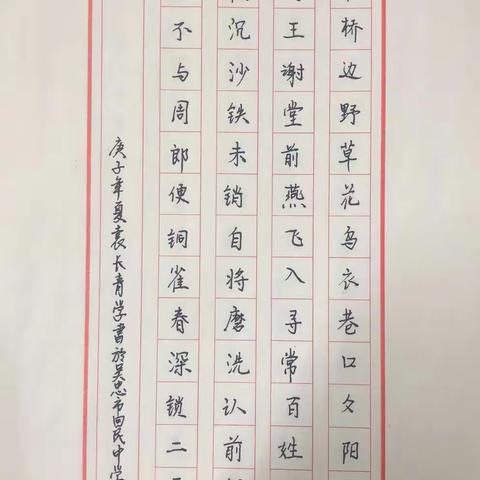 桥边野草花乌衣巷口夕阳
王谢堂前燕飞入寻常百姓
沉沙铁未销自将磨洗认前
不与周郎便铜雀春深锁二
庚子年夏袁长青学書於吴忠市回民中学